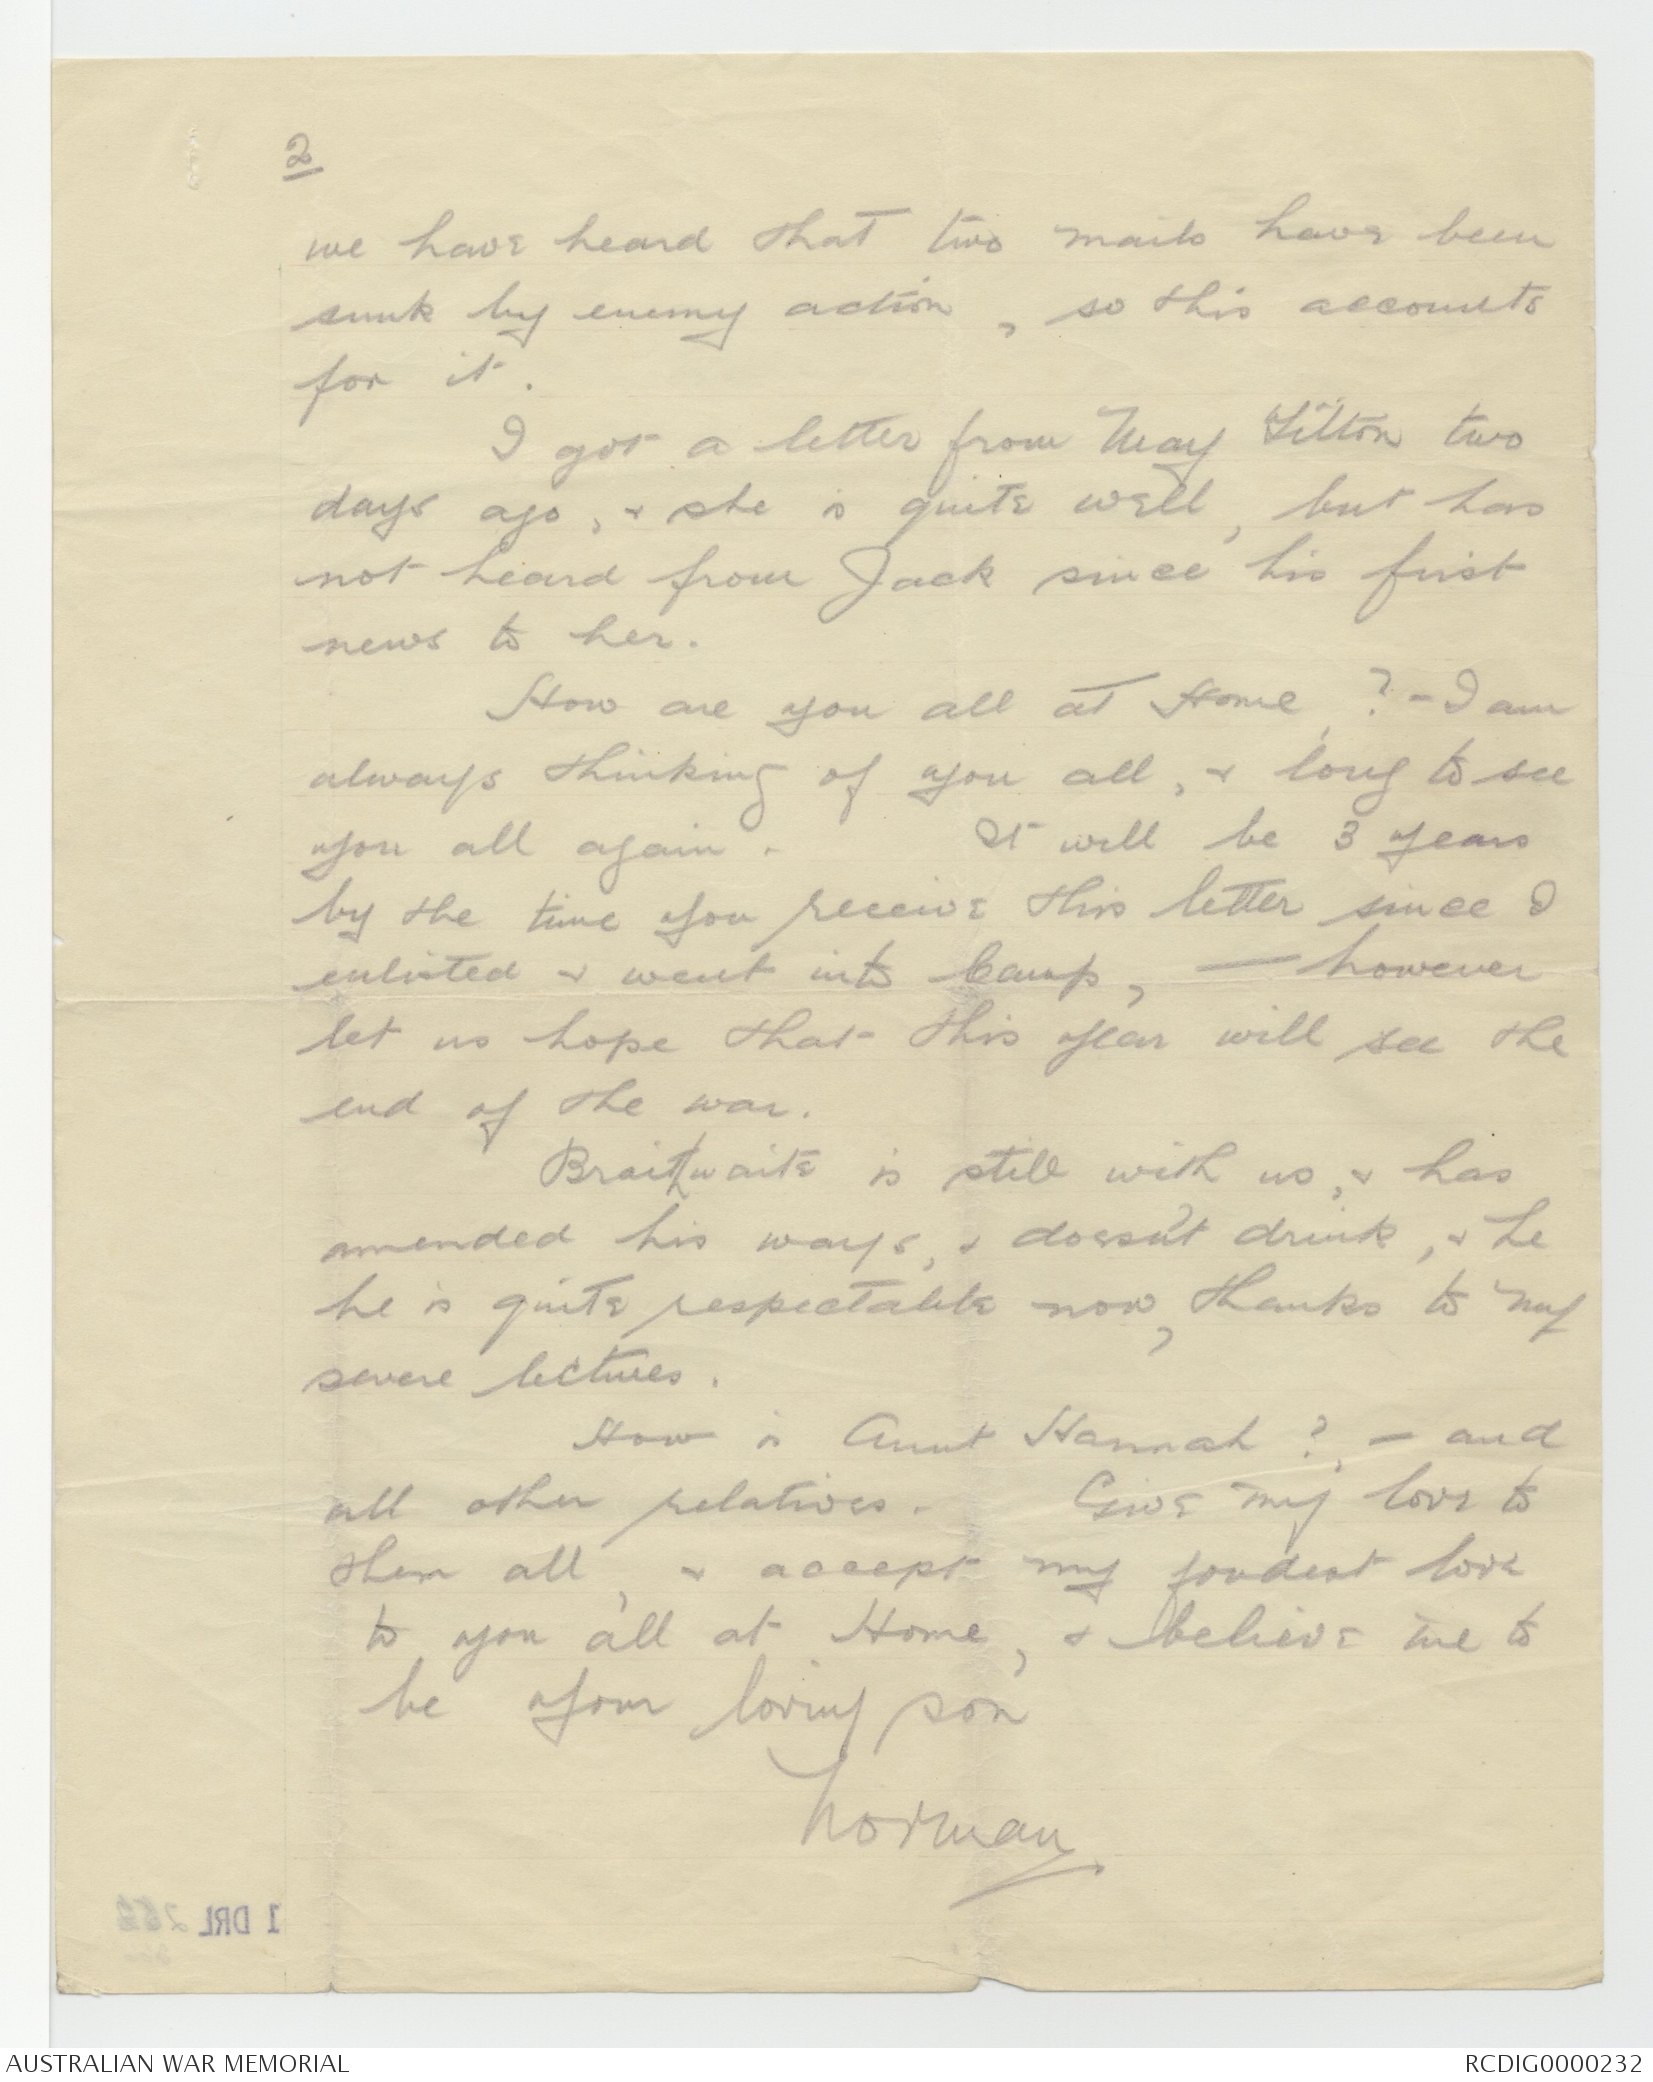 2
we have heard that two mails have been
sunk by enemy action, so this accounts
for it.
I got a letter from May Tilton two
days ago, & she is quite well, but has
not heard from Jack since his first
news to her.
How are you all at Home, ? - I am
always thinking of you all, & long to see
you all again. It will be 3 years
by the time you receive this letter since I
enlisted & went into Camp, — however
let us hope that this year will see the
end of the war.
Braithwaite is still with us, & has
amended his ways, & doesn't drink, & he
he is quite respectable now, thanks to my
severe lectures.
How is Aunt Hannah ?, — and
all other relatives. Give my love to
them all, & accept my fondest love
to you all at Home, & believe me to
be your loving son
Norman
1 DRL
AUSTRALIAN WAR MEMORIAL
RCDIG0000232